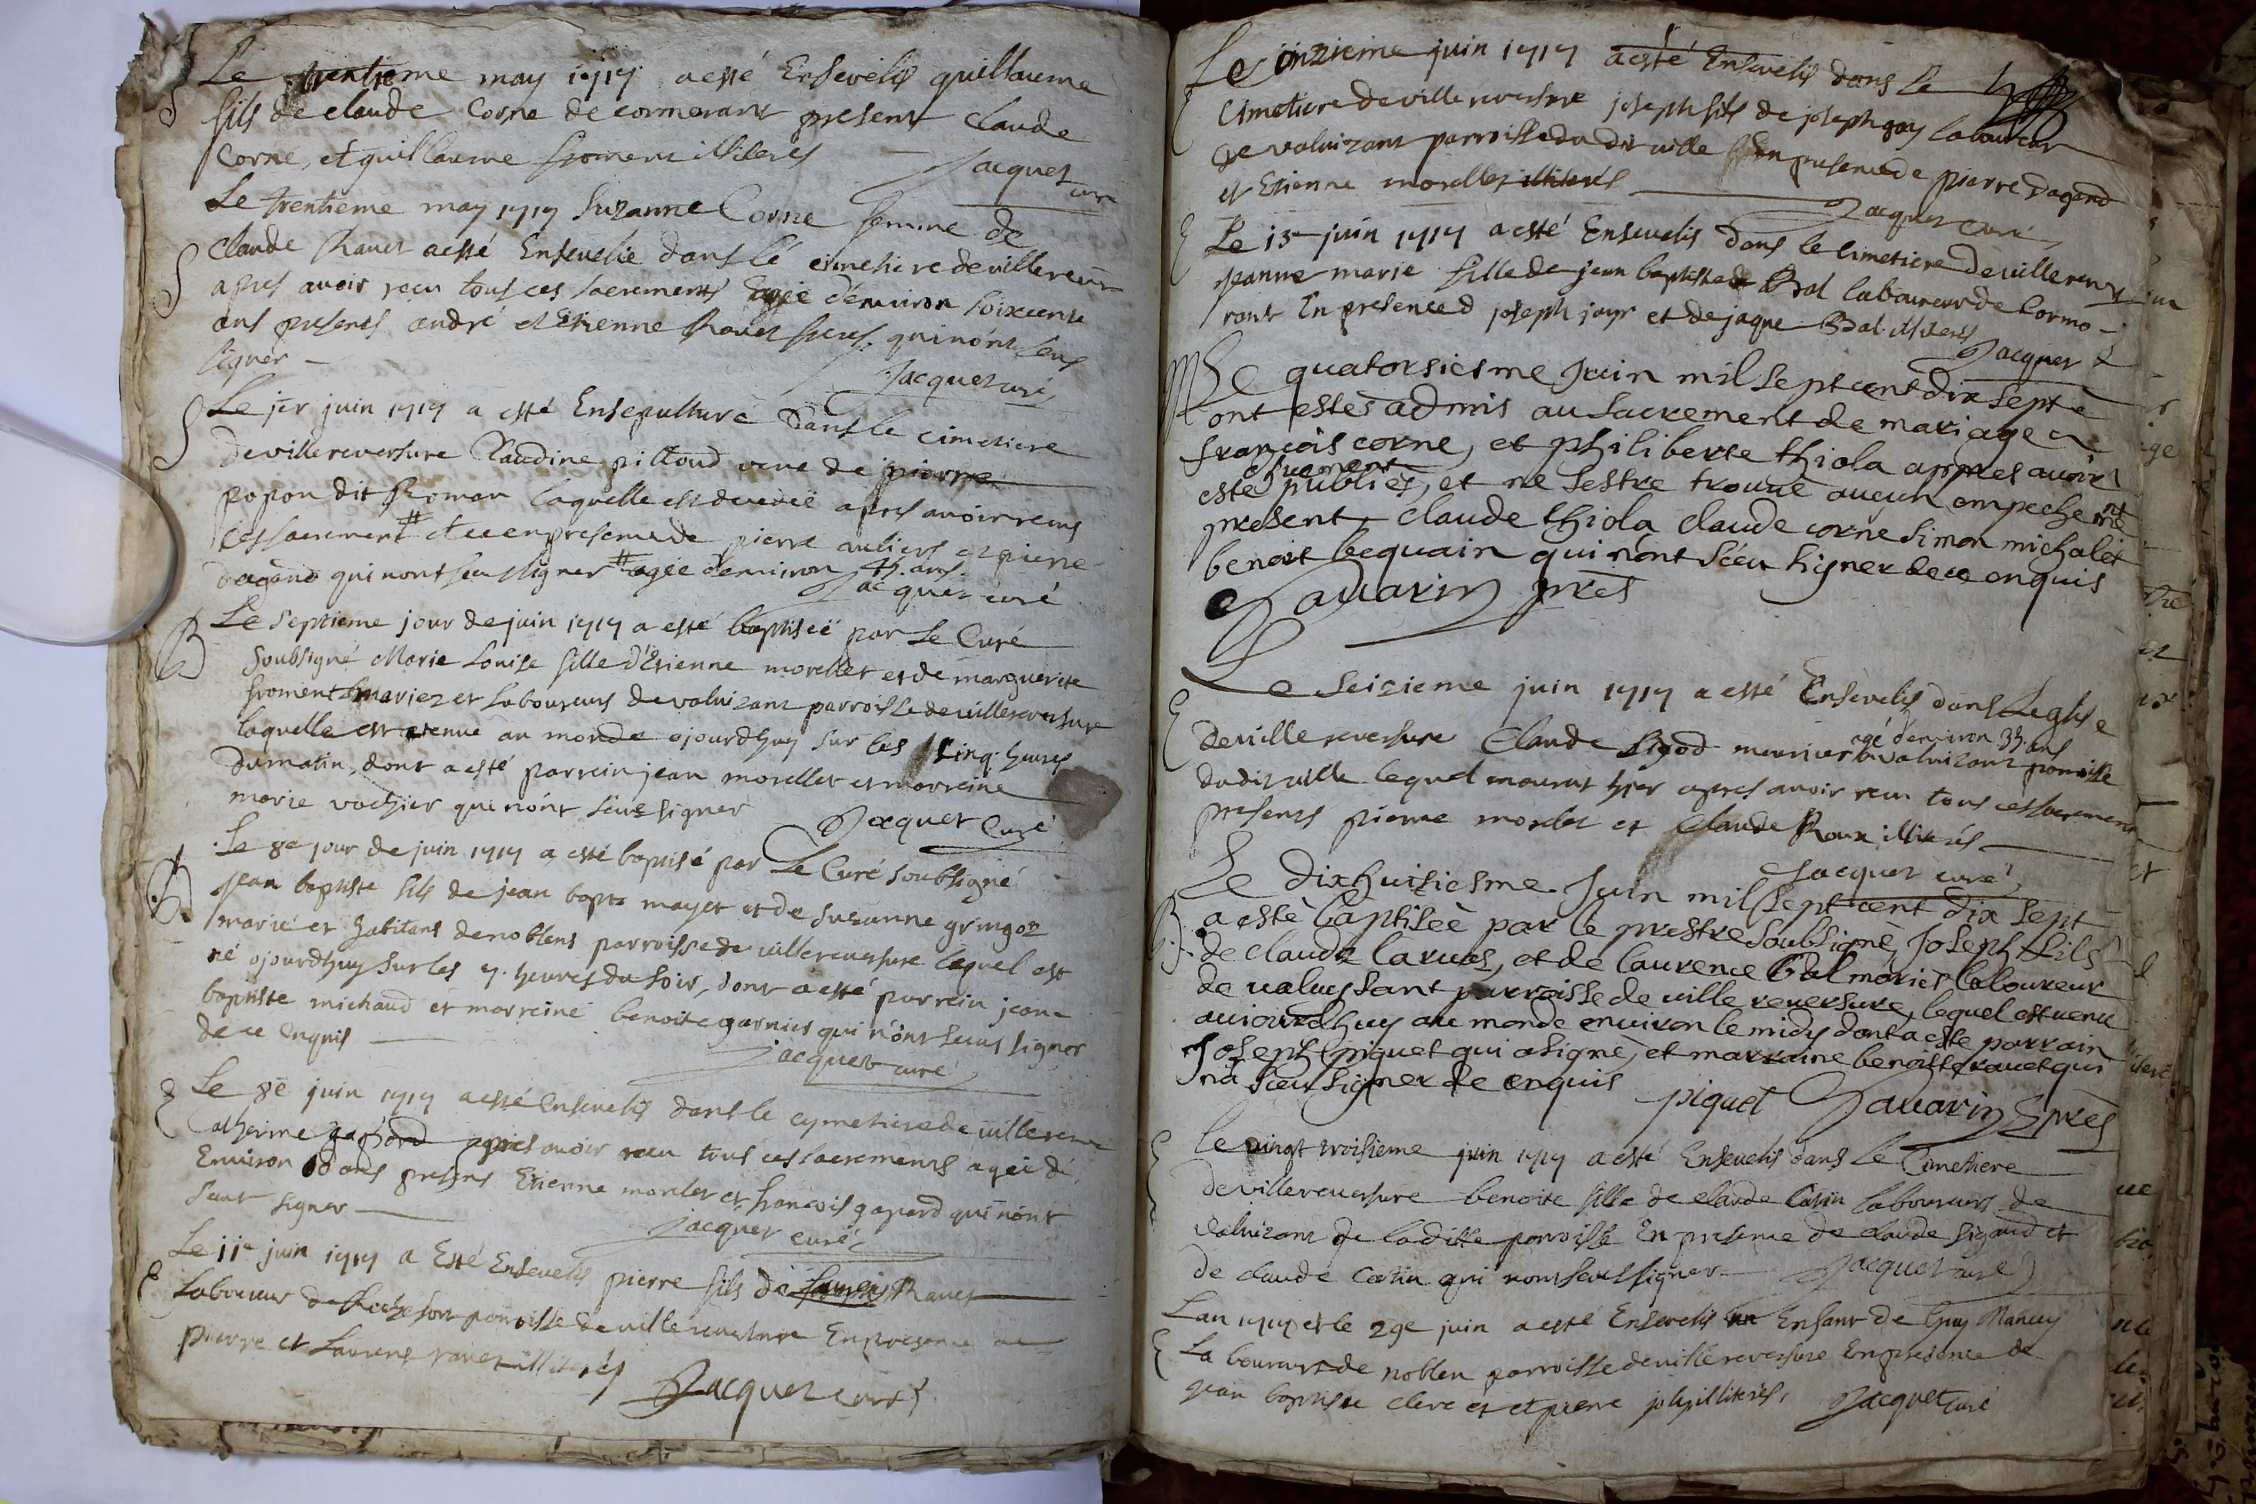 Le trentieme may 1717 a esté Ensevelis guillaume
fils de claude Corne de cormorant present claude
Corne, et guillaume froment illiterés
Jacquet curé
Le trentieme may 1717 Suzanne Corne femme de
Claude Ravet a esté Ensevelie dans le cimetiere de villereuer
apres avoir recu tous ces sacrements agée d'environ soixcente
ans presents andré et Etienne Ravet freres qui n'ont seus
signer
Jacquet curé
Le jer juin 1717 a esté Ensepulturé dans le cimetiere
de villereversure Claudine pilloud veve de pierre
popon dit Roman laquelle est decedeé apres avoir recus
ces sacrement # et ce en presence de pierre auliers et pierre
dagand qui nont seu signer # agée d'environ ans
Jacquet curé
Le Septieme jour de juin 1717 a esté baptiseé par Le Curé
Soubsigné Marie Louise fille d'Etienne morellet et de marguerite
froment mariez et Laboureurs de valuisant parroisse de villereversure
laquelle est venue au monde ojourdhuy sur les Cinq heures
du matin, dont a esté parrein jean morellet et marreine
marie vachier qui n'ont seus signer
Jacquet Curé
Le 8e jour de juin 1717 a esté baptisé par Le Curé soubsigné
jean baptiste fils de jean bapte mayet et de suzanne gringoz
marié et habitans de noblens parroisse de villereversure lequel est
né ojourdhuy sur les 7. heures du soir, dont a esté parrein jean
baptiste michaud et marreine benoite garnier qui n'ont seus signer
de ce enquis
Jacquet curé
Le 8e juin 1717 a esté ensevelis dans le cymetiere de villerever
Catherine gapard apres avoir recu tous ces sacrements agée de
Environ ans presens Etienne morelet et francois gapard qui n'ont
seut signer
Jacquet curé
Le 11e juin 1717 a Esté Ensevelis pierre fils de Ravet
Laboureur de Rochefort parroisse de villereversure En presence de
pierre et Laurens ravet illiterés
Jacquet curé
Le onzieme juin 1717 a esté Ensevelis dans Le
Cimetiere de villereversure joseph fils de joseph gay laboureur
de valuizant parroisse du dit ville En presence de pierre Dagand
et Etienne morellet illiterés
Jacquet curé
Le 13e juin 1717 a esté Ensevelis dans le cimetiere de villerever
jeanne marie fille de jean baptiste Bal laboureur de Cormo
rant En presence d joseph jayr et de jaque Bal illiteres
Jacquet
Le quatorsiesme Juin mil sept cent dix sept
ont estés admis au sacrement de mariage
françois corne, et philiberte thiola appres avoir
düement
esté publiés, et ne sestre trouué aucun empecheme nt
present claude thiola claude corne simon michalet
benoit bequain qui n'ont sceu signer de ce enquis
Savarin pres
Le Seizieme juin 1717 a esté Ensevelis dans Leglise
agé d'environ 35 ans
de ville reversure Claude Sigod meunier a valuizant parroisse
dudit ville lequel mourut hier apres avoir recu tous ces sacrement
presents pierre morelet et Claude Roux illiterés
Jacquet curé
Le dixhuitiesme Juin mil sept cent dix sept
a esté baptiseé par le prestre soubsigné, Joseph fils
de claude laruas, et de laurence Bal mariés laboureur
de valuissant parroisse de ville reversure, lequel est venu
auiourdhuy au monde environ le midy dont a esté parrain
Joseph piquet qui a signé, et marraine benoitte rauet qui
n'a sceu signer de enquis
piquet Savarin pres
le vingt troisieme juin 1717 a esté Ensevelis dans Le Cimetiere
de villereversure benoite fille de claude Catin laboureurs de
valuizant de la ditte parroisse En presence de claude sigaud et
de claude Catin qui nont seus signer Jacquet curé
Lan 1717 et le 29e juin a esté Ensevelis un Enfant de Guy Mancey
Laboureur de noblen parroisse de villereversure En presence de
jean baptiste clerc et et pierre joly illiterés. Jacquet curé